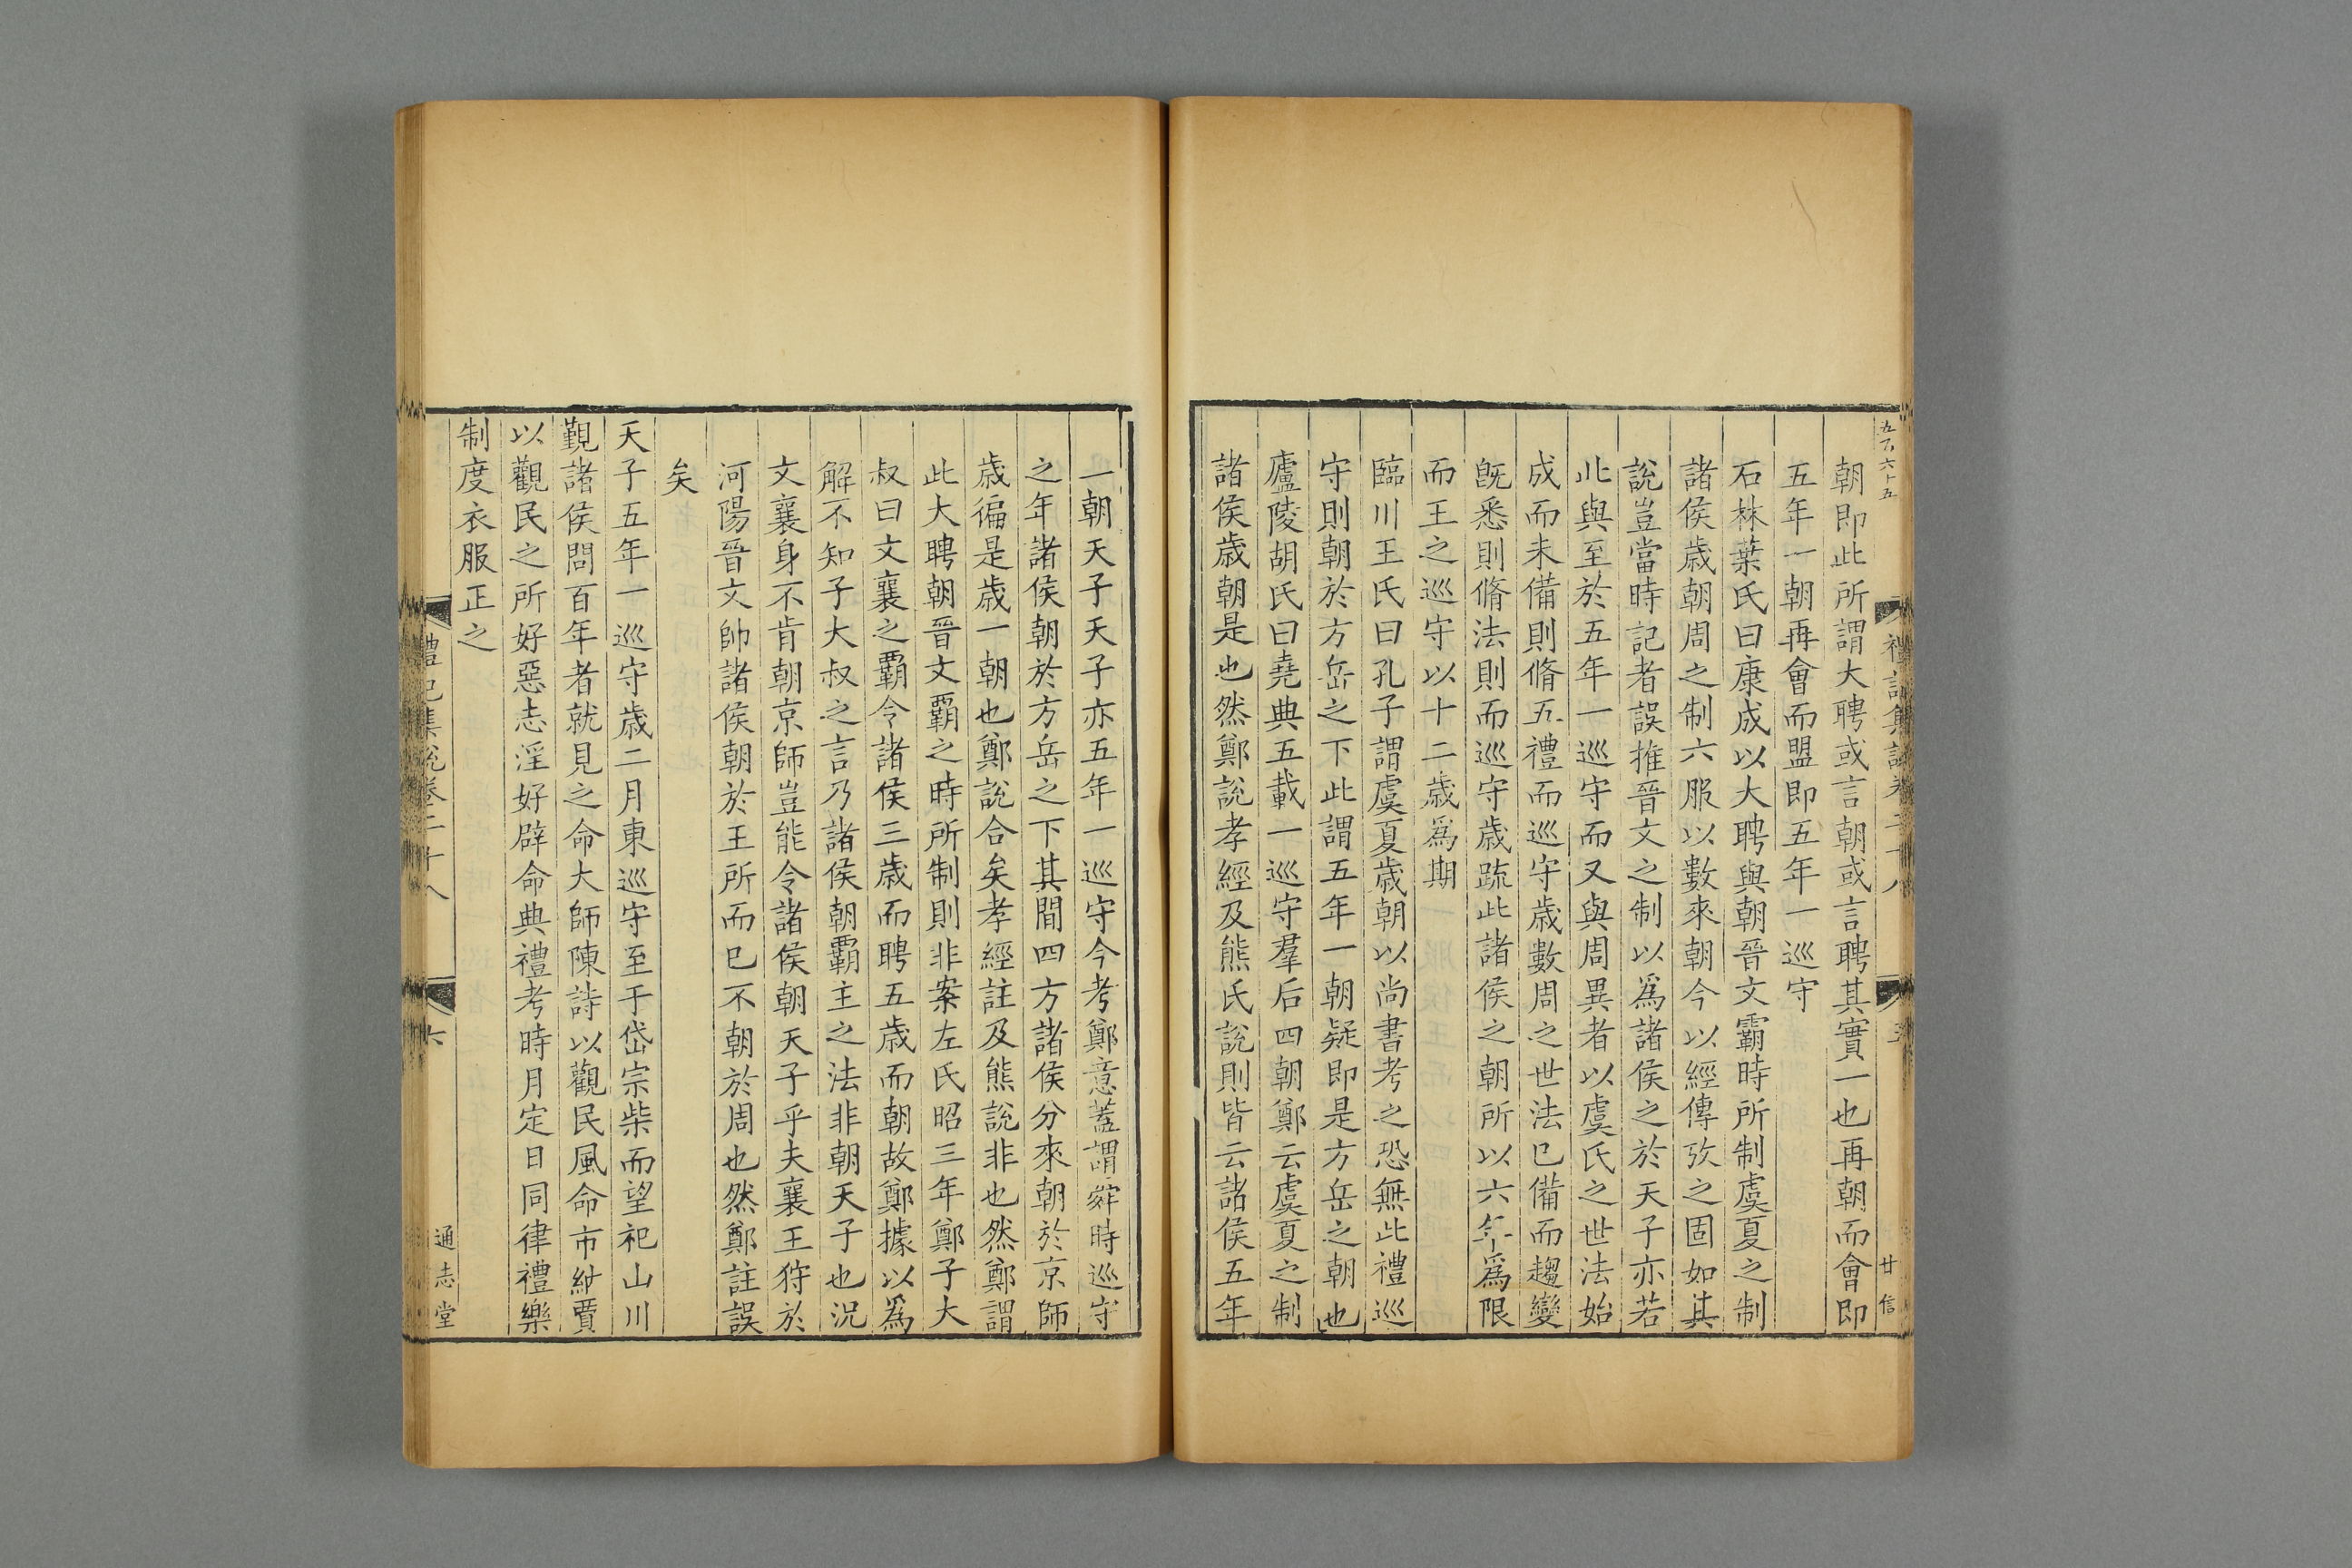 五百六十五
禮記集說卷二十八
五
甘信
朝即此所謂大聘或言朝或言聘其實一也再朝而會即
五年一朝再會而盟即五年一巡守
石林葉氏曰康成以大聘與朝晉文霸時所制虞夏之制
諸侯歲朝周之制六服以數來朝今以經傳攷之固如其
說豈當時記者誤推晉文之制以為諸侯之於天子亦若
此與至於五年一巡守而又與周異者以虞氏之世法始
成而未備則脩五禮而巡守歲數周之世法已備而趨變
旣悉則脩法則而巡守歲疏此諸侯之朝所以六年為限
而王之巡守以十二歲為期
臨川王氏曰孔子謂虞夏歲朝以尚書考之恐無此禮巡
守則朝於方岳之下此謂五年一朝疑即是方岳之朝也
廬陵胡氏曰堯典五載一巡守羣后四朝鄭云虞夏之制
諸侯歲朝是也然鄭說孝經及熊氏說則皆云諸侯五年
一朝天子天子亦五年一巡守今考鄭意蓋謂舜時巡守
之年諸侯朝於方岳之下其間四方諸侯分來朝於京師
歲徧是歲一朝也鄭說合矣孝經註及熊說非也然鄭謂
此大聘朝晉文霸之時所制則非案左氏昭三年鄭子大
叔曰文襄之霸令諸侯三歲而聘五歲而朝故鄭據以為
解不知子大叔之言乃諸侯朝霸主之法非朝天子也況
文襄身不肯朝京師豈能令諸侯朝天子乎夫襄王狩於
河陽晉文帥諸侯朝於王所而已不朝於周也然鄭註誤
矣
天子五年一巡守歲二月東巡守至于岱宗柴而望祀山川
覲諸侯問百年者就見之命大師陳詩以觀民風命市納賈
以觀民之所好惡志淫好辟命典禮考時月定日同律禮樂
制度衣服正之
禮記集說卷二十八
六
通志堂